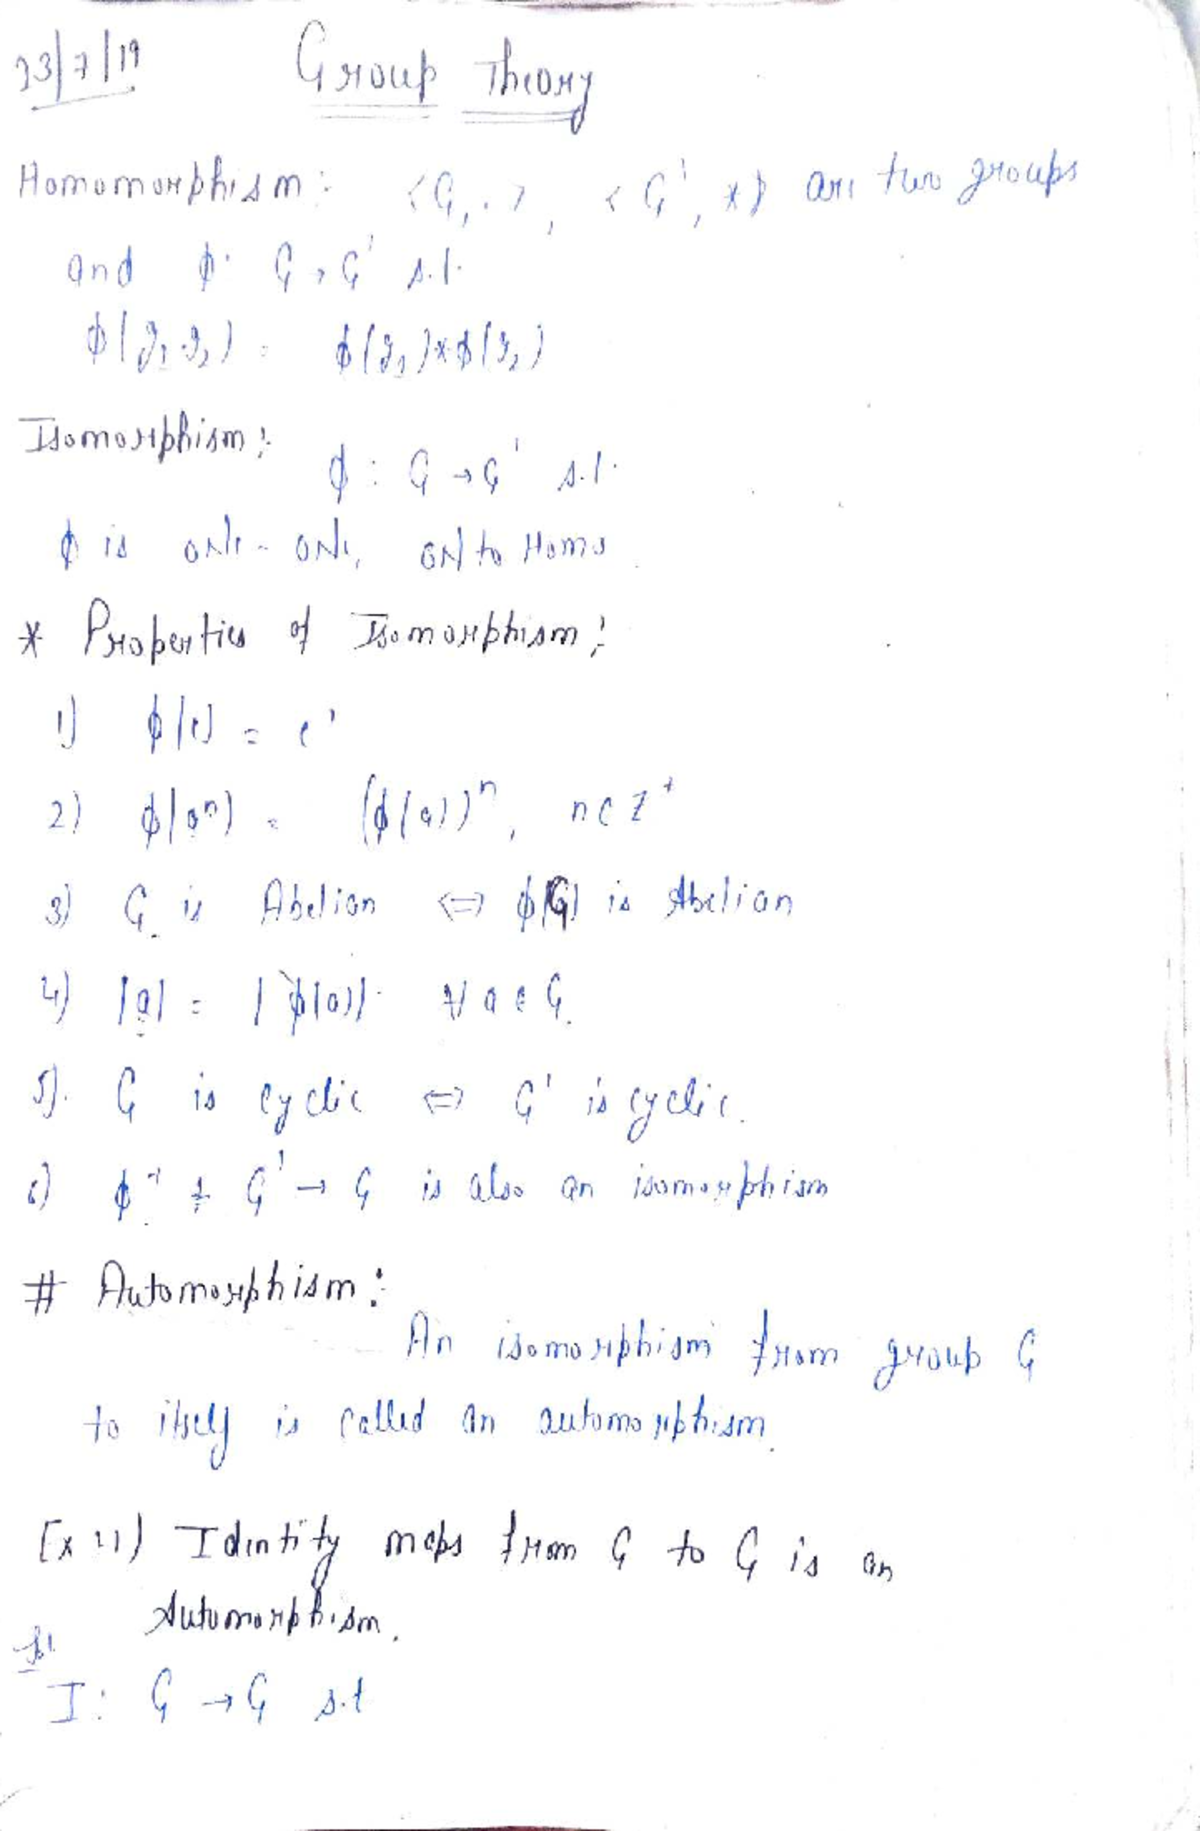 23/7/19 Group Theory
Homomorphism: <G, .>, <G', *> are two groups
and φ: G → G' s.t.
φ(g₁.g₂) = φ(g₁)*φ(g₂)
Isomorphism:
φ : G → G' s.t.
φ is one-one, onto Homo
* Properties of Isomorphism:
1) φ(e) = e'
2) φ(aⁿ) = (φ(a))ⁿ, n ∈ Z⁺
3) G is Abelian ⇔ φ(G) is Abelian
4) |a| = |φ(a)| ∀ a ∈ G.
5). G is cyclic ⇔ G' is cyclic.
6) φ⁻¹ : G' → G is also an isomorphism
# Automorphism:
An isomorphism from group G
to itself is called an automorphism.
Ex :1) Identity maps from G to G is an
Automorphism.
Sol
I: G → G s.t